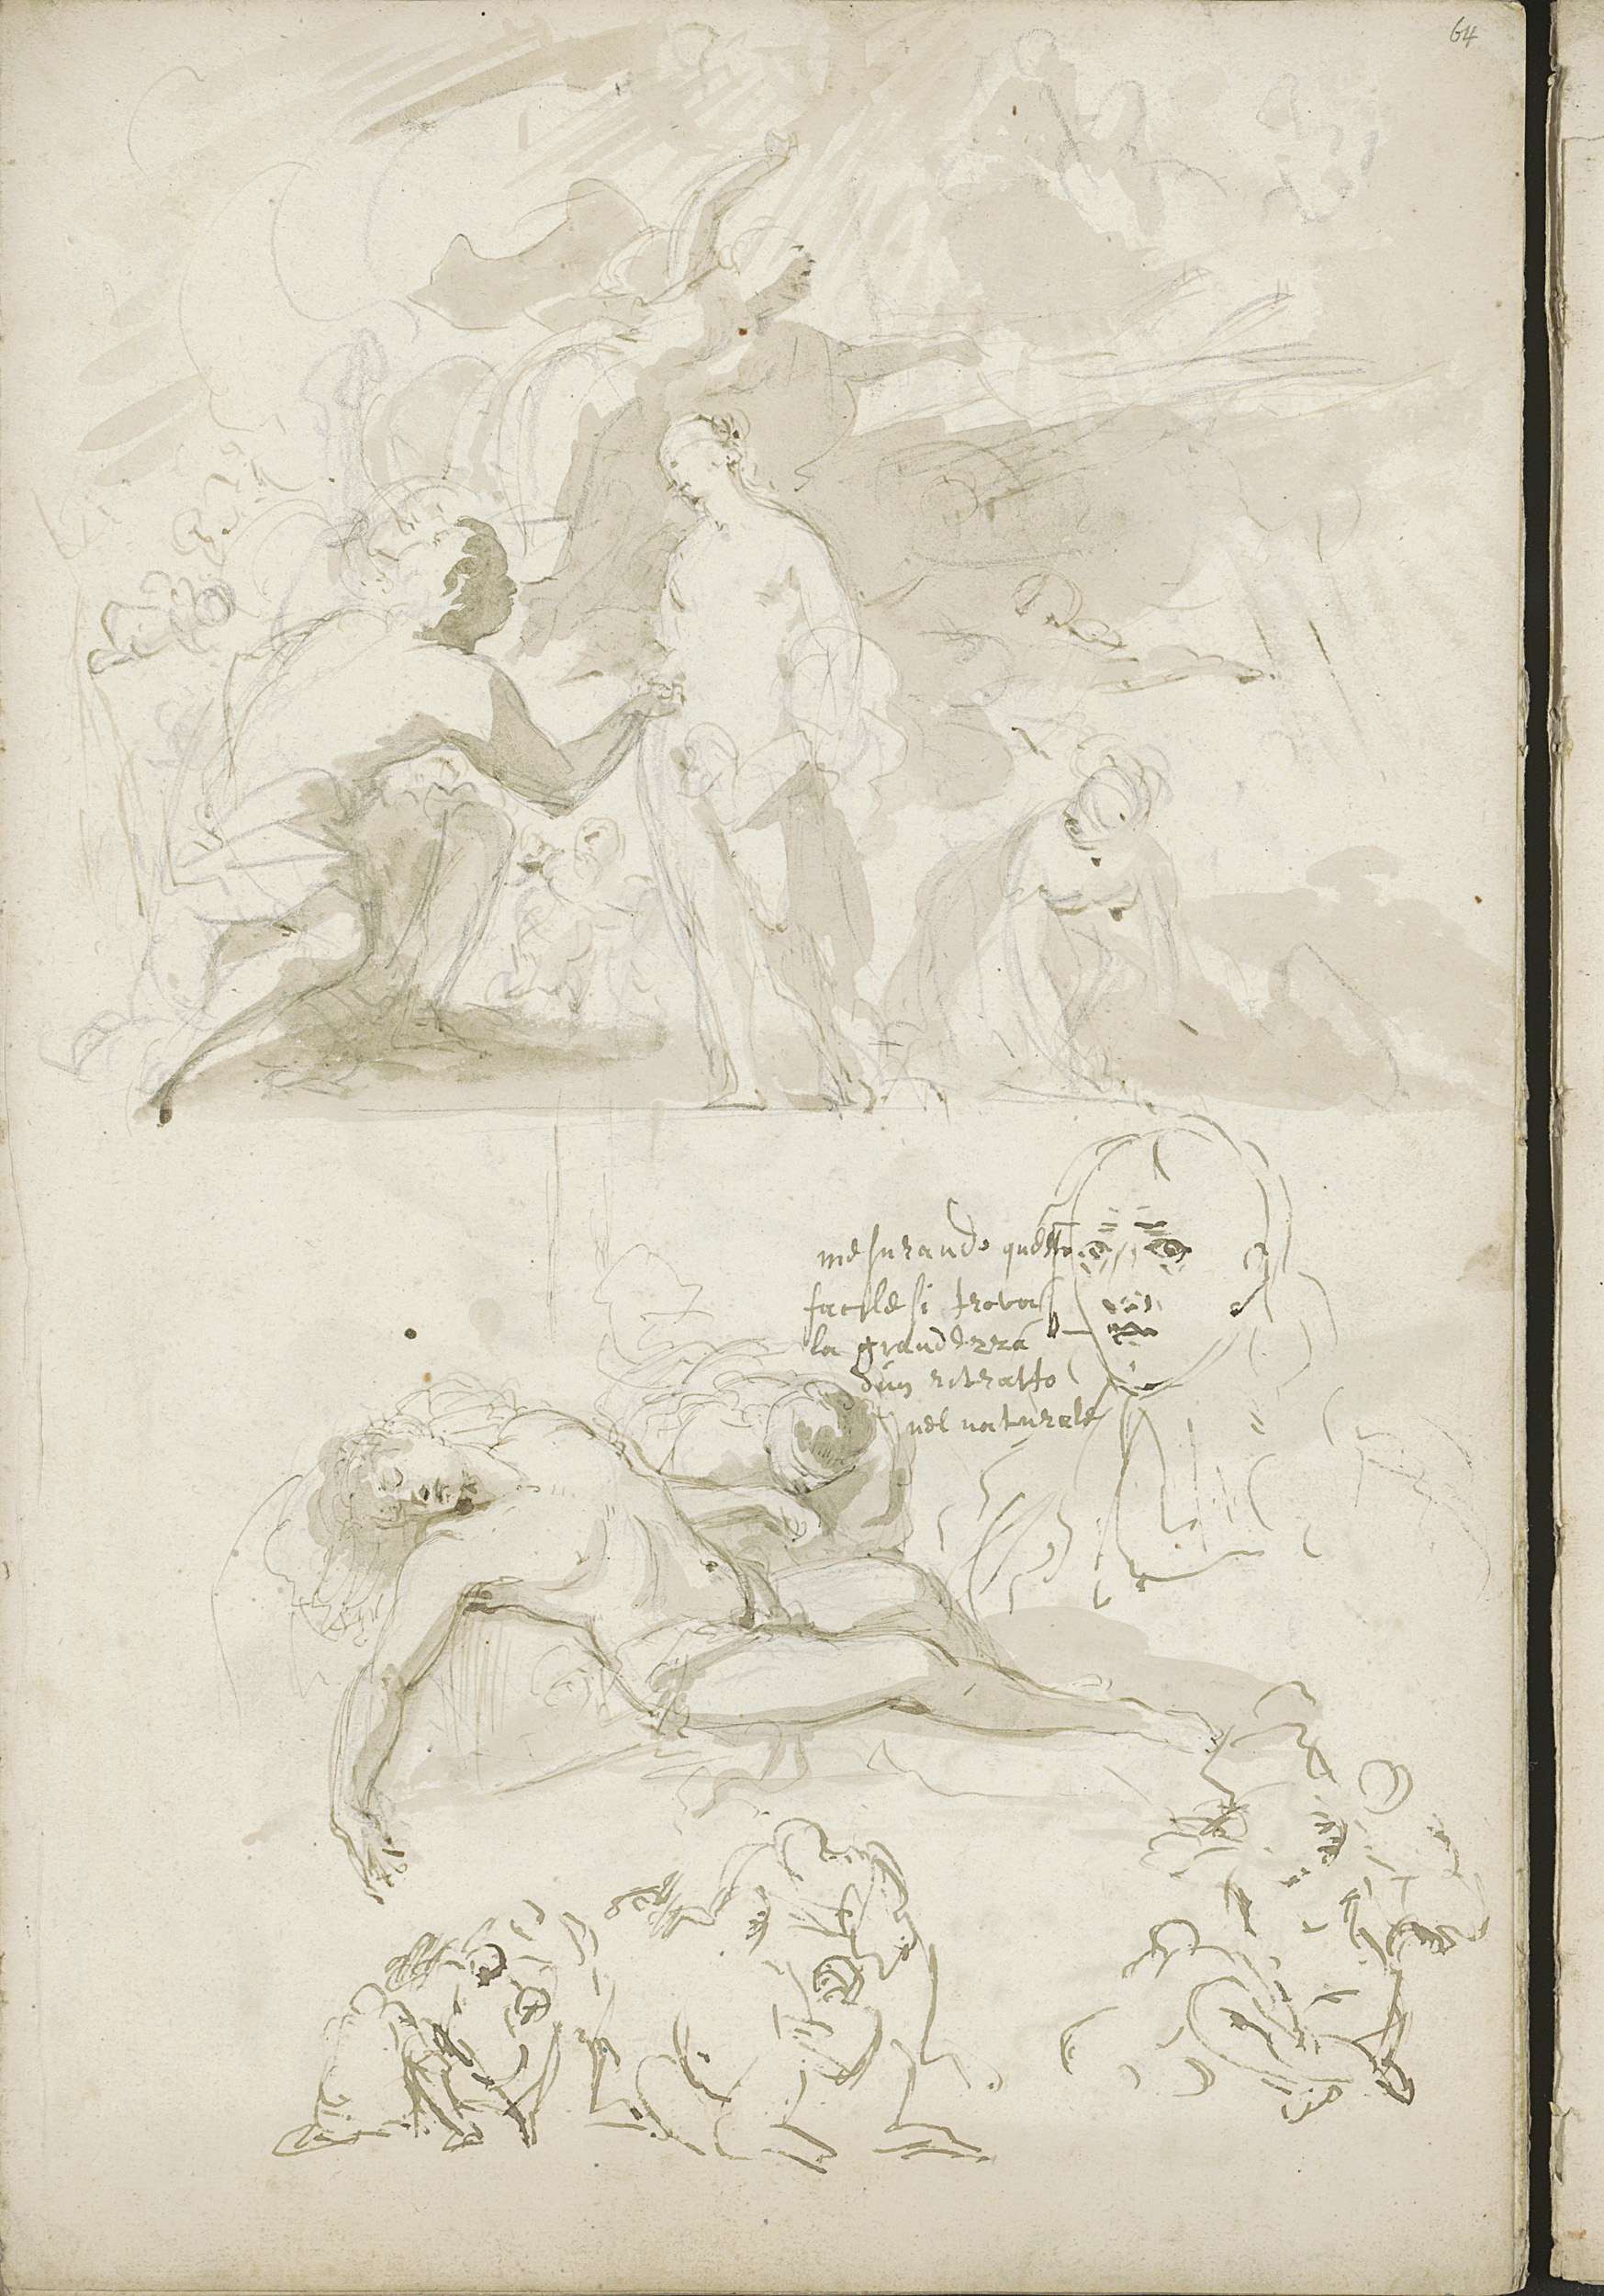 64
mesurando questo
facile si trova
la grandezza
dun ritratto
nel naturale